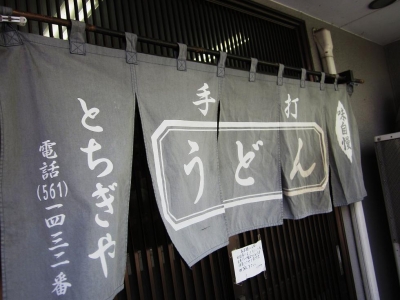 とちぎや
電話(561)一四三二番
手打
うどん
味自慢